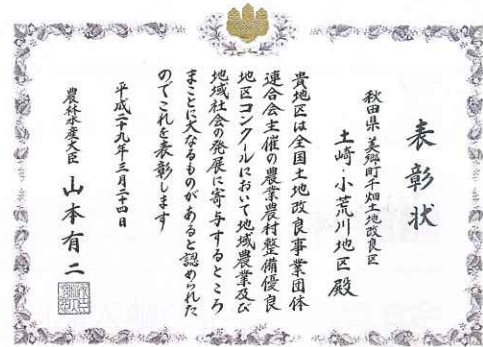 表彰状
秋田県 美郷町千畑土地改良区
土崎・小荒川地区 殿
貴地区は全国土地改良事業団体
連合会主催の農業農村整備優良
地区コンクールにおいて地域農業及び
地域社会の発展に寄与するところ
まことに大なるものがあると認められた
のでこれを表彰します
平成二十九年三月二十四日
農林水産大臣 山本有二